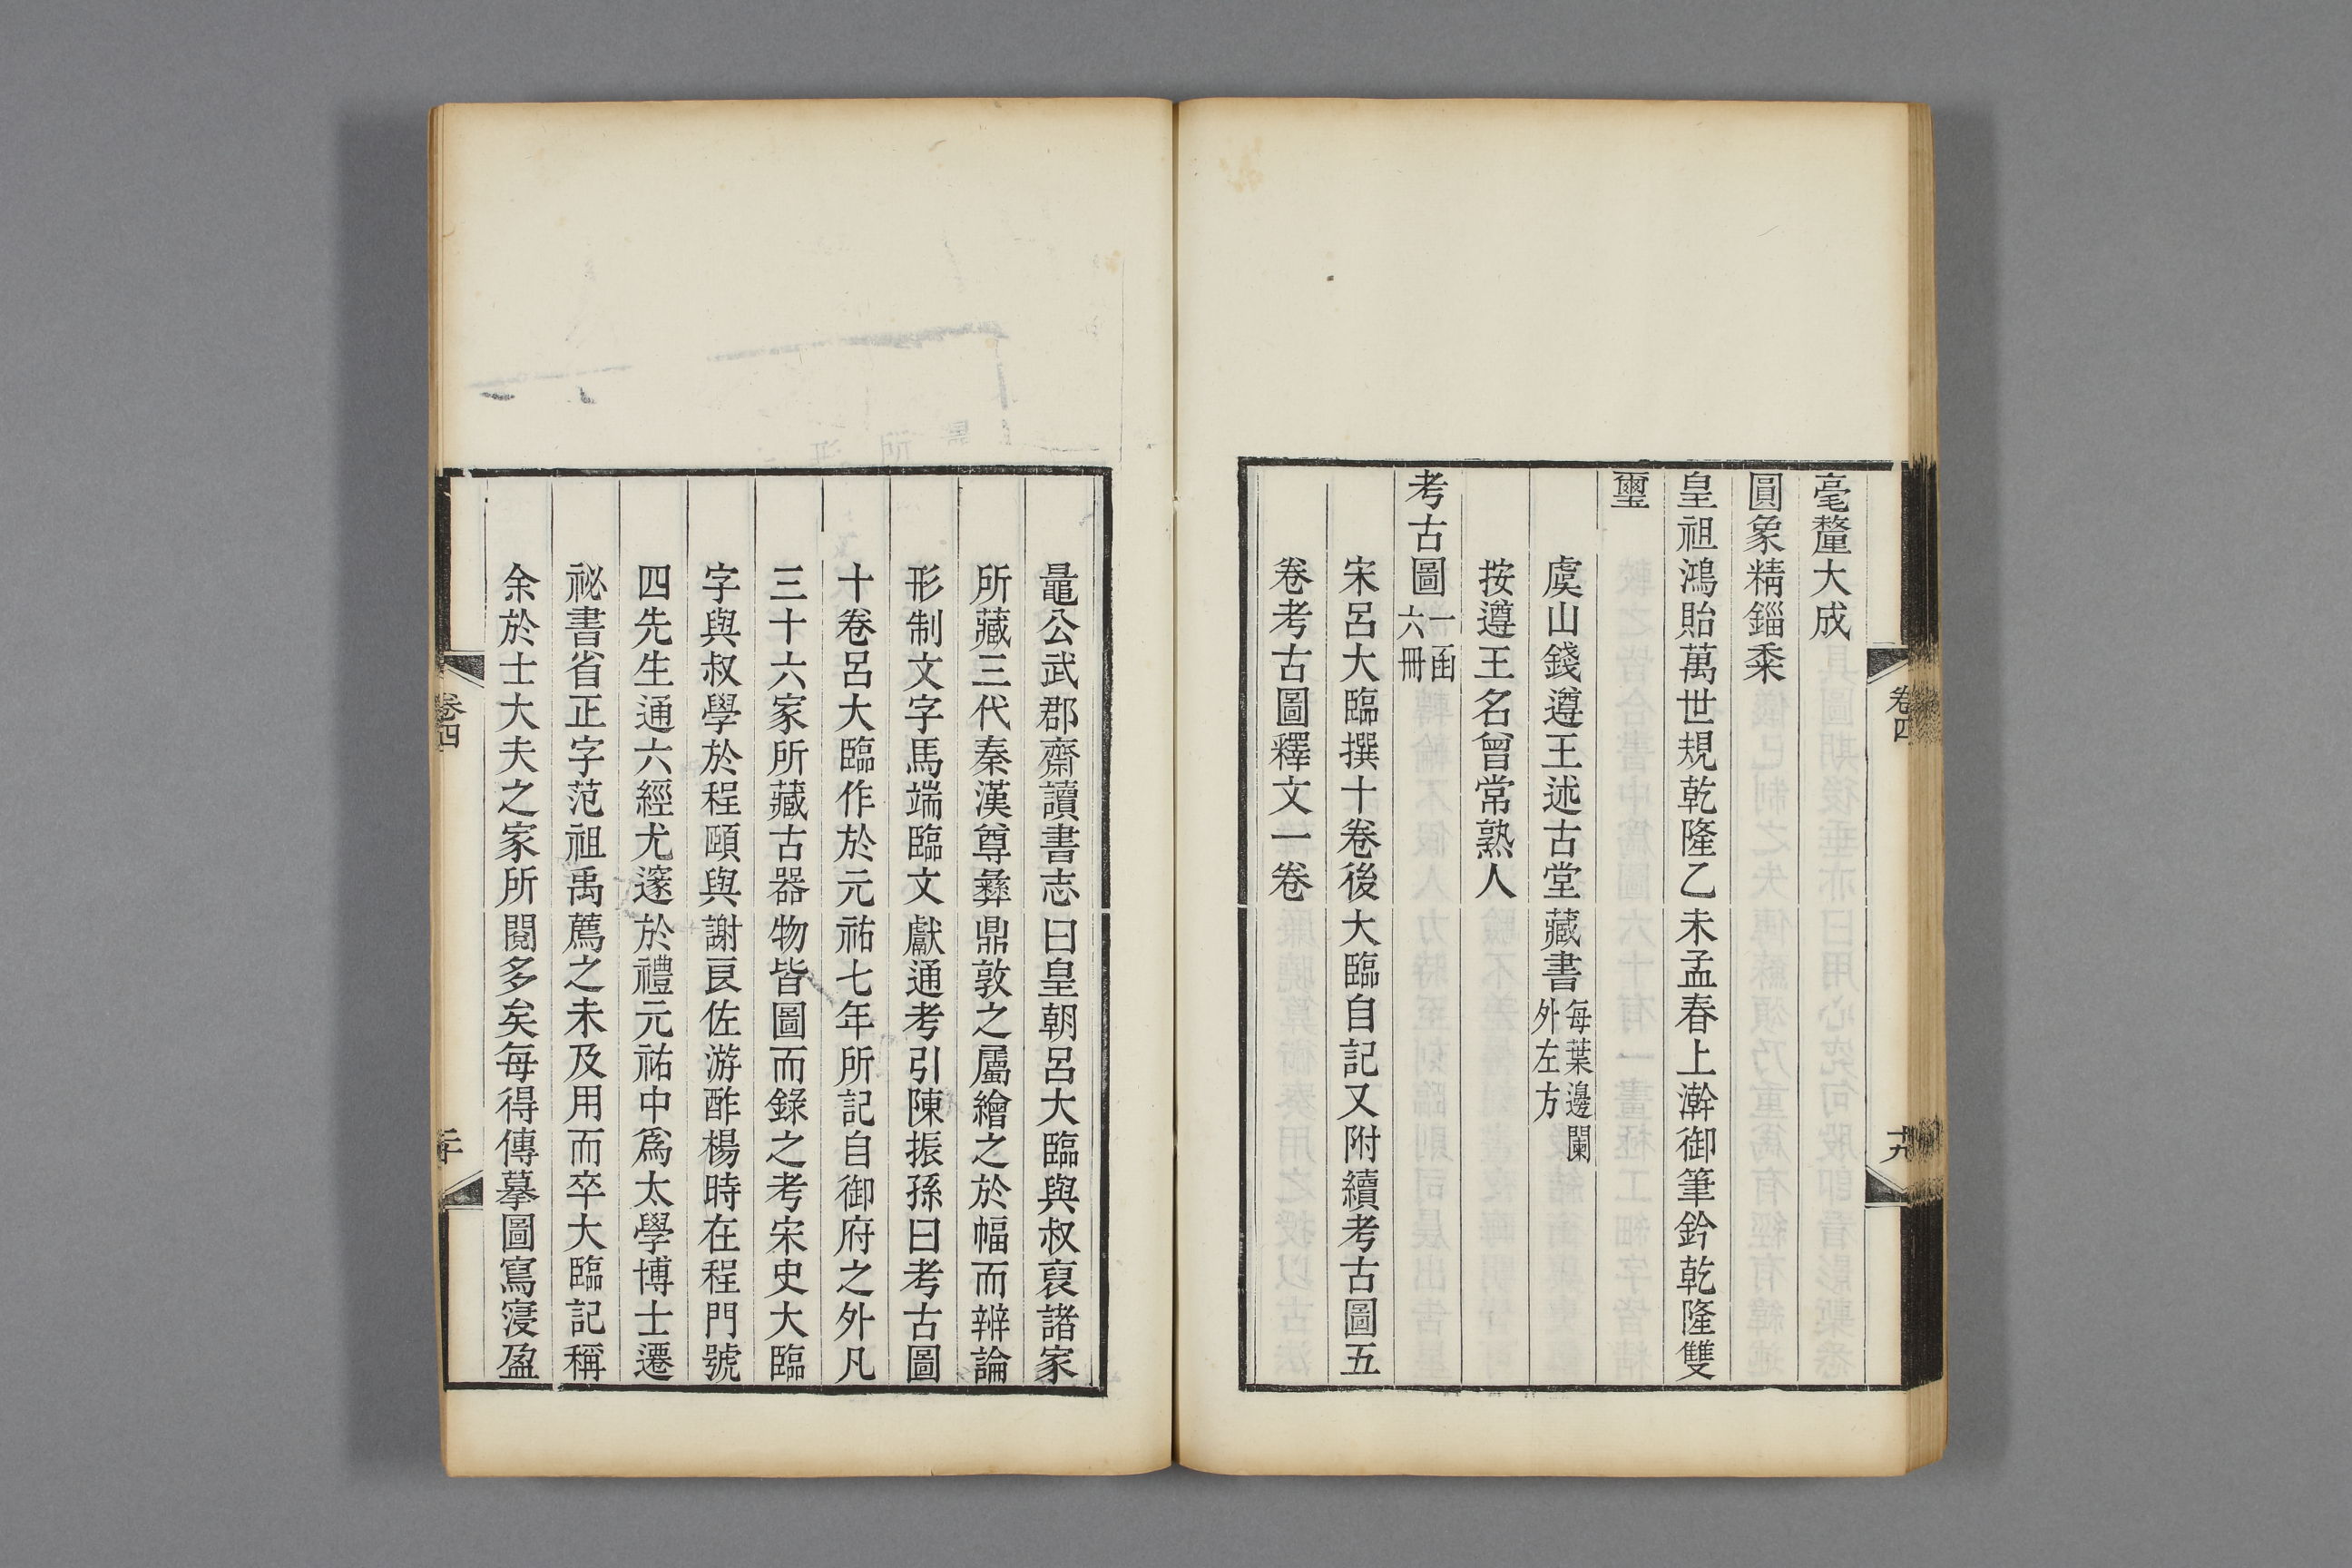 毫釐大成
圓象精錙黍
皇祖鴻貽萬世規乾隆乙未孟春上澣御筆鈐乾隆雙
璽
虞山錢遵王述古堂藏書每葉邊闌外左方
按遵王名曾常熟人
考古圖一函六冊
宋呂大臨撰十卷後大臨自記又附續考古圖五
卷考古圖釋文一卷
卷四
十九
鼂公武郡齋讀書志曰皇朝呂大臨與叔裒諸家
所藏三代秦漢尊彝鼎敦之屬繪之於幅而辨論
形制文字馬端臨文獻通考引陳振孫曰考古圖
十卷呂大臨作於元祐七年所記自御府之外凡
三十六家所藏古器物皆圖而錄之考宋史大臨
字與叔學於程頤與謝良佐游酢楊時在程門號
四先生通六經尤邃於禮元祐中爲太學博士遷
祕書省正字范祖禹薦之未及用而卒大臨記稱
余於士大夫之家所閱多矣每得傳摹圖寫寖盈
卷四
二十